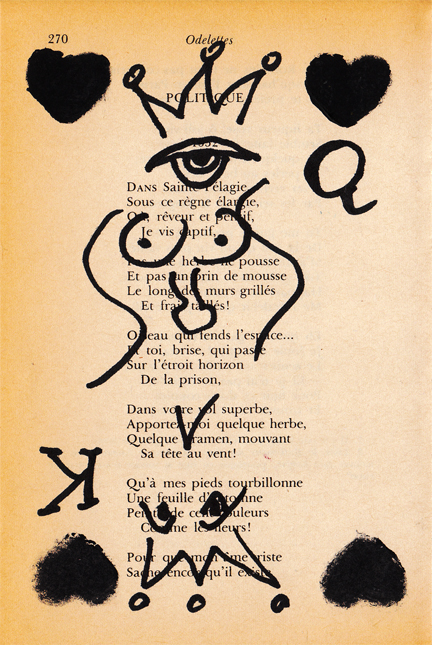 270 Odelettes
POLITIQUE
1832
Q
DANS Sainte-Pélagie,
Sous ce règne élargie,
Où, rêveur et pensif,
Je vis captif,
Pas une herbe ne pousse
Et pas un brin de mousse
Le long des murs grillés
Et frais taillés!
Oiseau qui fends l'espace...
Et toi, brise, qui passe
Sur l'étroit horizon
De la prison,
Dans votre vol superbe,
Apportez-moi quelque herbe,
Quelque gramen, mouvant
Sa tête au vent!
K
Qu'à mes pieds tourbillonne
Une feuille d'automne
Peinte de cent couleurs
Comme les fleurs!
Pour que mon âme triste
Sache encor qu'il existe